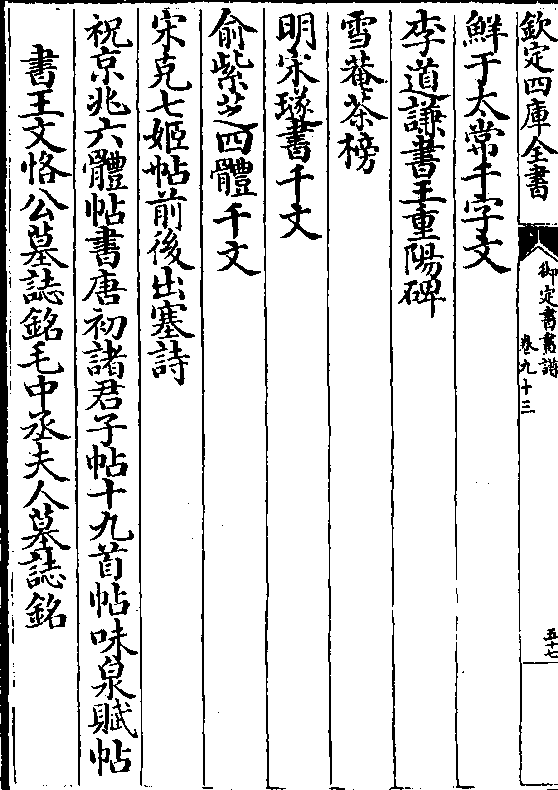 欽定四庫全書
御定書畫譜
卷九十三
五十七
鮮于太常千字文
李道謙書王重陽碑
雪菴茶榜
明宋璲書千文
俞紫芝四體千文
宋克七姬帖前後出塞詩
祝京兆六體帖書唐初諸君子帖十九首帖味泉賦帖
書王文恪公墓誌銘毛中丞夫人墓誌銘